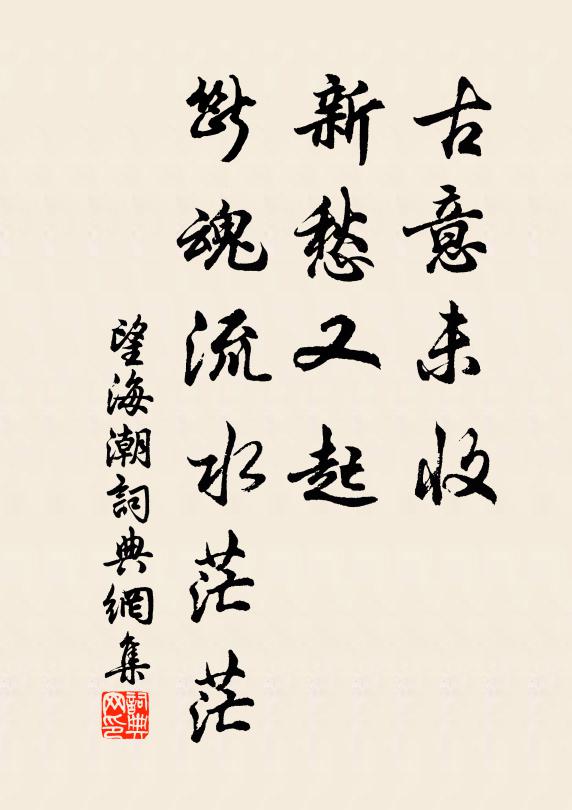 古意未收
新愁又起
斷魂流水茫茫
望海潮詞典網集
詞典网印